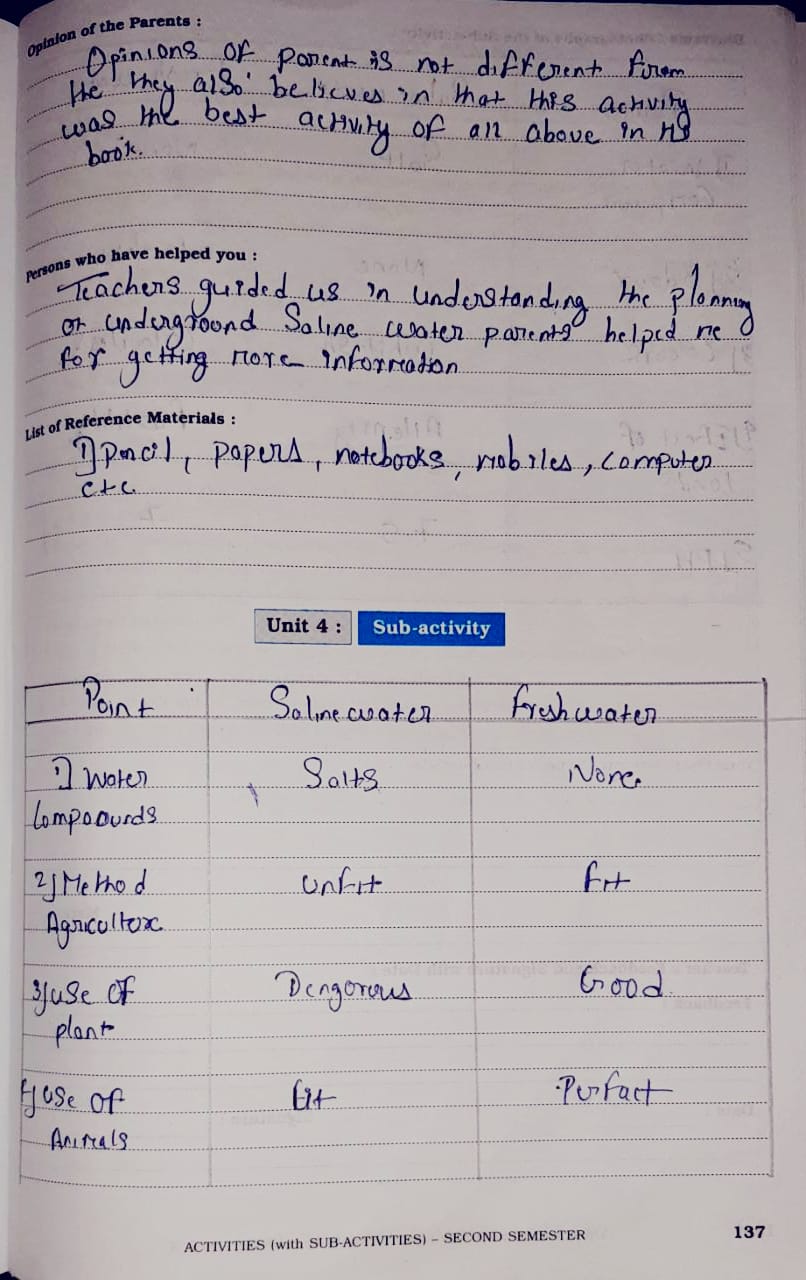 Opinion of the Parents :
Opinions of parent is not different from
He they also believes in that this activity
was the best activity of all above in
book.
Persons who have helped you :
Teachers guided us in understanding the planning
of underground Saline water parents helped me
for getting more information
List of Reference Materials :
1) Pencil, papers, notebooks, mobiles, computer
etc.
Unit 4 : Sub-activity
Point Saline water Freshwater
1) Water Salts None
Compoounds
2) Method unfit fit
Agriculture
3) use of Dengorous Good
plant
4) use of fit Perfact
Animals
ACTIVITIES (with SUB-ACTIVITIES) – SECOND SEMESTER 137